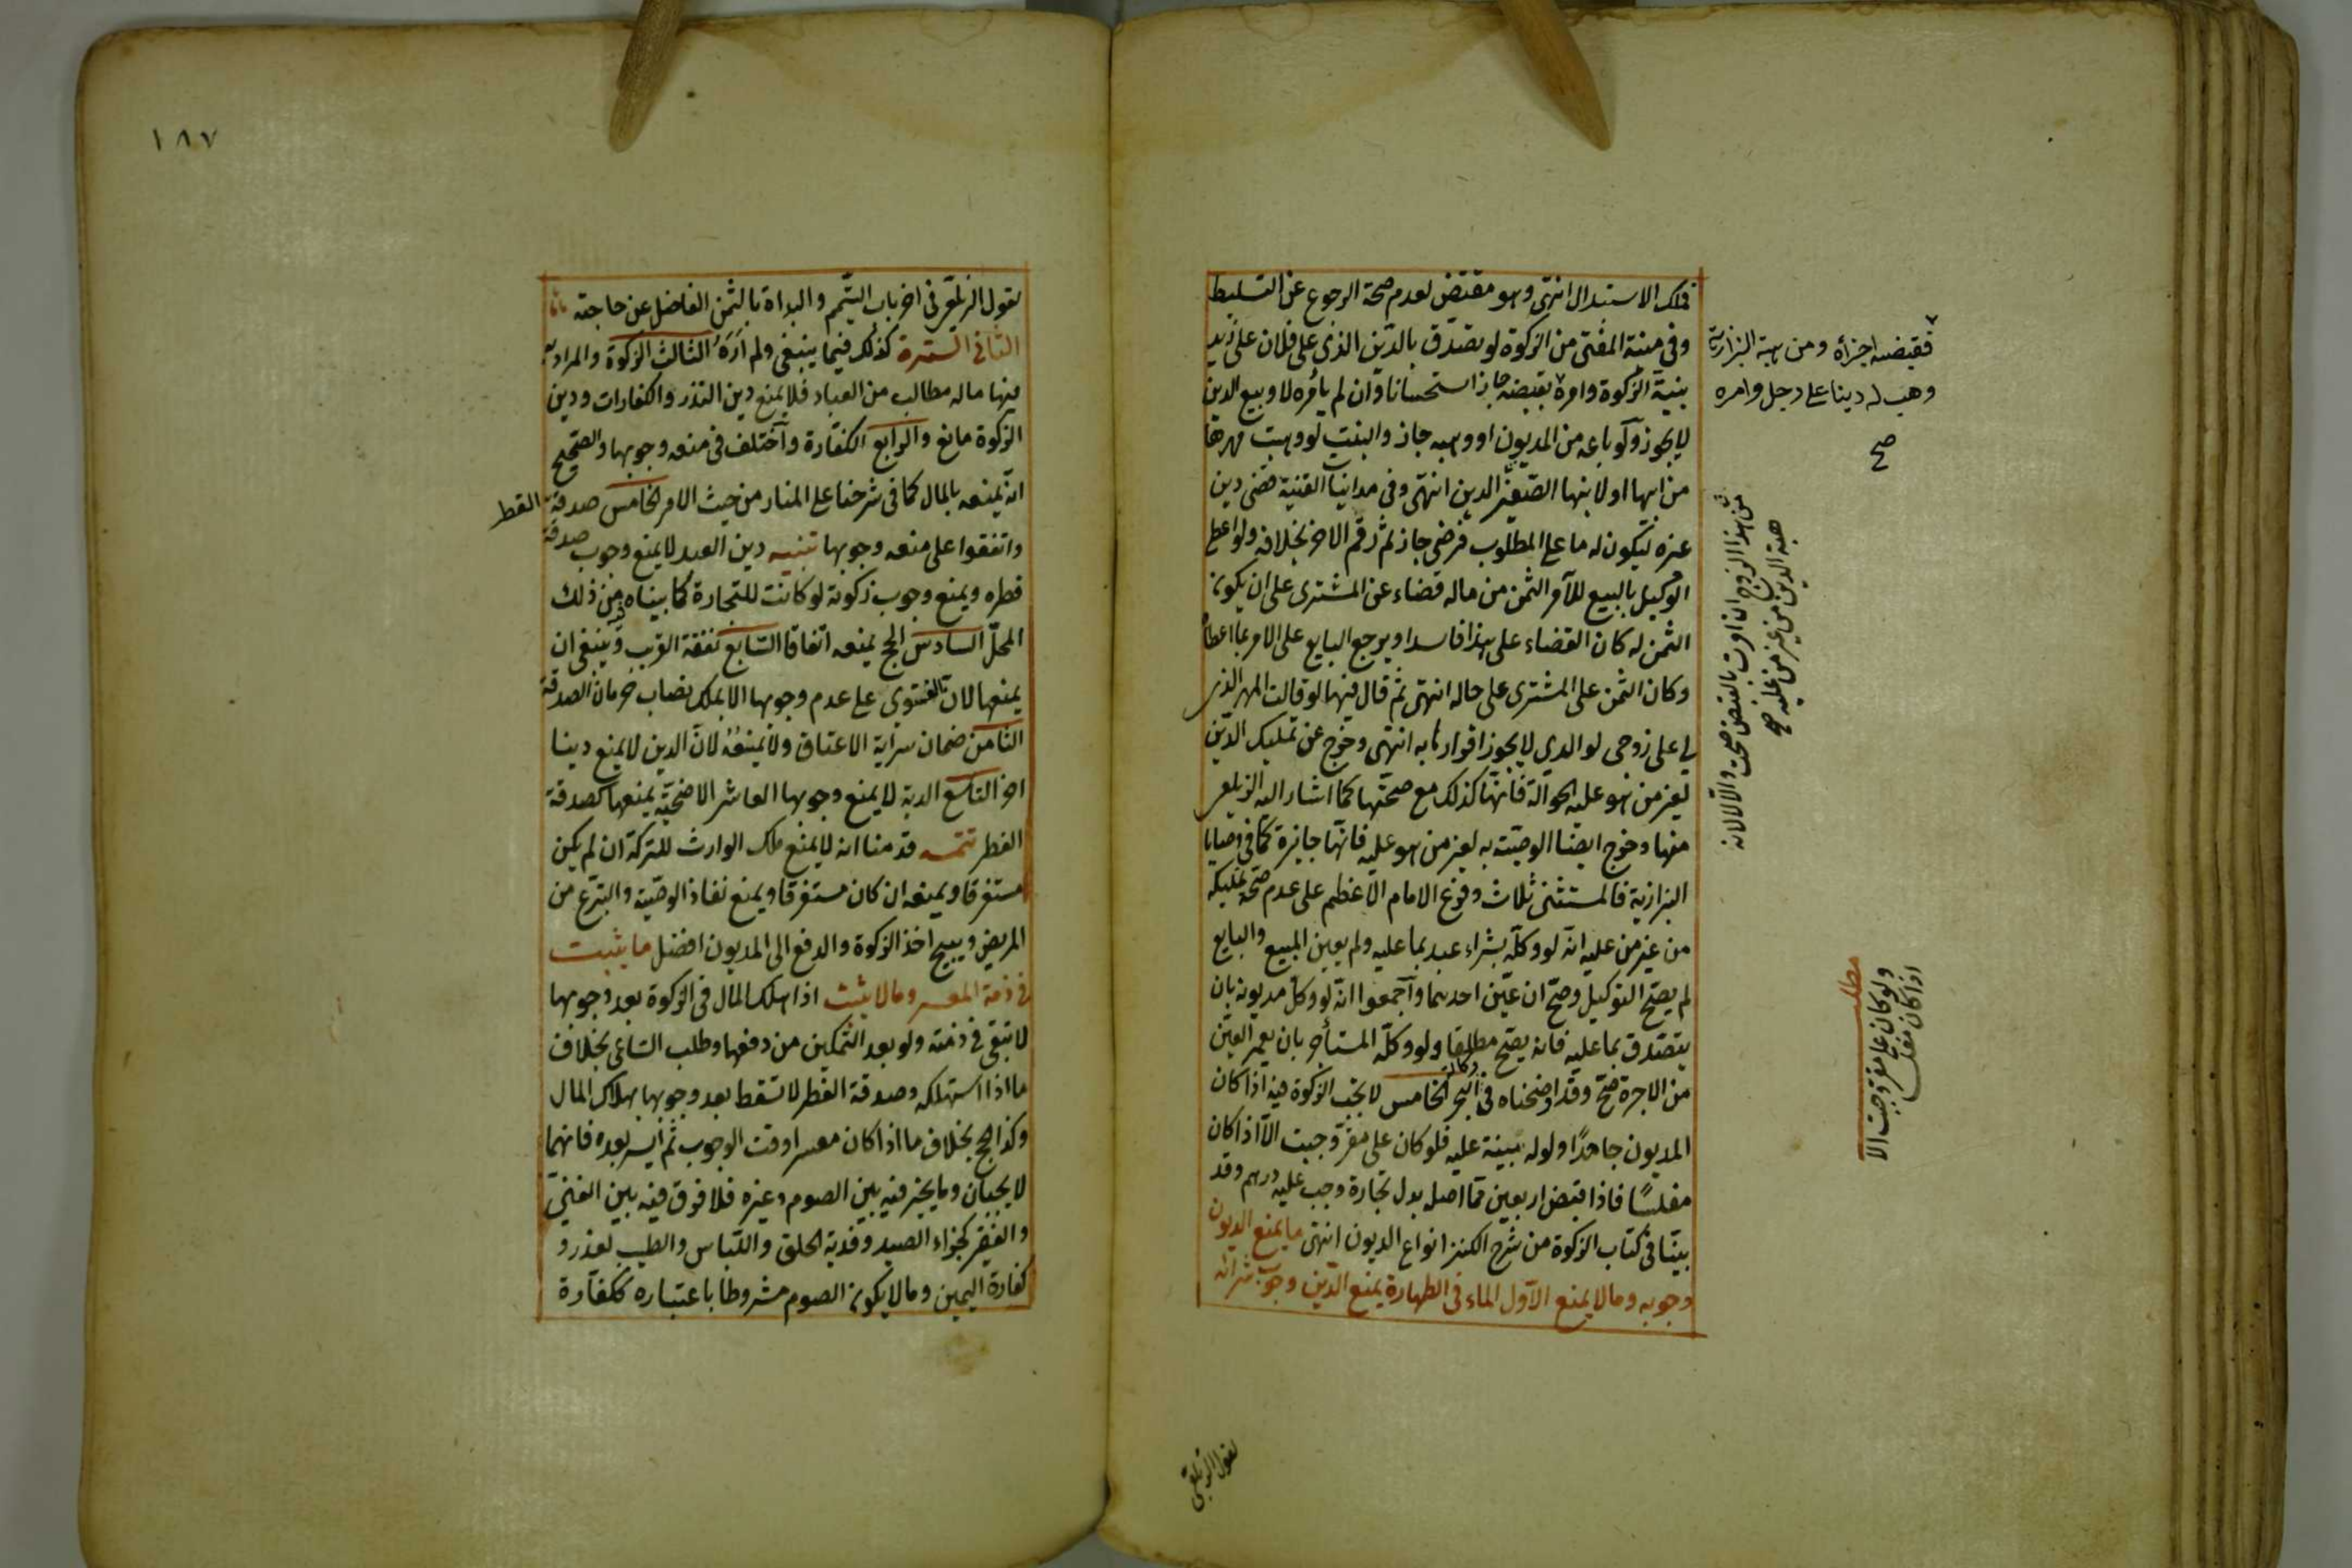 فلك الاستبدال انتهى وهو مقتض لعدم صحة الرجوع عن التسليط
وفى منية المفتى من الزكوة لو تصدق بالدين الذى على فلان على زيد
بنية الزكوة وامره بقبضه جاز استحسانا وان لم يأمره لا وبيع الدين
لا يجوز ولو باعه من المديون او وهبه جاز والبنت لو وهبت مهرها
من ابيها او لابنها الصغير الدين انتهى وفى مداينات القنية قضى دين
غيره ليكون له ما على المطلوب فرضى جاز ثم رقم لاخر بخلافه ولو اعطى
الوكيل بالبيع للآمر الثمن من ماله قضاء عن المشترى على ان يكون
الثمن له كان القضاء على هذا فاسدا ويرجع البايع على الامر بما اعطاه
وكان الثمن على المشترى على حاله انتهى ثم قال فيها لو قالت المهر الذى
لى على زوجى لوالدى لا يجوز اقرارها به انتهى وخرج عن تمليك الدين
لغير من هو عليه الحوالة فانها كذلك مع صحتها كما اشار اليه الزيلعى
منها وخرج ايضا الوصية به لغير من هو عليه فانها جايزة كما فى وصايا
البزازية فالمستثنى ثلاث وفرع الامام الاعظم على عدم صحة تمليكه
من غير من عليه انه لو وكله بشراء عبد بما عليه ولم يعين المبيع والبايع
لم يصح التوكيل وصح ان عين احدهما واجمعوا انه لو وكل مديونه بان
يتصدق بما عليه فانه يصح مطلقا ولو وكل المستأجر بان يعمر العين
من الاجرة صح وقد اوضحناه فى وكالة البحر الخامس لا تجب الزكوة فيه اذا كان
المديون جاحدا ولو له بينة عليه فلو كان على مقر وجبت الا اذا كان
مفلسا فاذا قبض اربعين مما اصله بدل تجارة وجب عليه درهم وقد
بينا فى كتاب الزكوة من شرح الكنز انواع الديون انتهى ما يمنع الديون
وجوبه وما لا يمنع الاول الماء فى الطهارة يمنع الدين وجوب شرائه
فقبضه اجزأه ومن هبة البزازية
وهب له دينا على رجل وامره
صح
من هذا الزوج ان امرت بالقبض صحت والا لا لانه
هبة الدين من غير من عليه صح
مطلب
ولو كان على مقر وجبت الا
اذا كان مفلسا
لقول الزيلعى
١٨٧
لقول الزيلعى فى اخر باب التيمم والبداة بالثمن الفاضل عن حاجته
الثانى السترة كذلك فيما ينبغى ولم اره الثالث الزكوة والمراد به
فيها ماله مطالب من العباد فلا يمنع دين النذر والكفارات ودين
الزكوة مانع والرابع الكفارة واختلف فى منعه وجوبها والصحيح
انه يمنعه بالمال كما فى شرحنا على المنار من حيث الامر الخامس صدقة الفطر
واتفقوا على منعه وجوبها تنبيه دين العبد لا يمنع وجوب صدقة
فطره ويمنع وجوب زكوته لو كانت للتجارة كما بيناه من ذلك
المحل السادس الحج يمنعه اتفاقا السابع نفقة القريب وينبغى ان
يمنعها لان الفتوى على عدم وجوبها الا بملك نصاب حرمان الصدقة
الثامن ضمان سراية الاعتاق ولا يمنعه لان الدين لا يمنع دينا
اخر التاسع الدية لا يمنع وجوبها العاشر الاضحية يمنعها كصدقة
الفطر تتمه قدمنا انه لا يمنع ملك الوارث للتركة ان لم يكن
مستغرقا ويمنعه ان كان مستغرقا ويمنع نفاذ الوصية والتبرع من
المريض ويبيح اخذ الزكوة والدفع الى المديون افضل ما يثبت
فى ذمة المعسر وما لا يثبت اذا هلك المال فى الزكوة بعد وجوبها
لا تبقى فى ذمته ولو بعد التمكين من دفعها وطلب الساعى بخلاف
ما اذا استهلكه وصدقة الفطر لا تسقط بعد وجوبها بهلاك المال
وكذا الحج بخلاف ما اذا كان معسرا وقت الوجوب ثم ايسر بعده فانهما
لا يجبان وما يخير فيه بين الصوم وغيره فلا فرق فيه بين الغنى
والفقير كجزاء الصيد وفدية الحلق واللباس والطيب لعذر و
كفارة اليمين وما لا يكون الصوم مشروطا باعتباره ككفارة